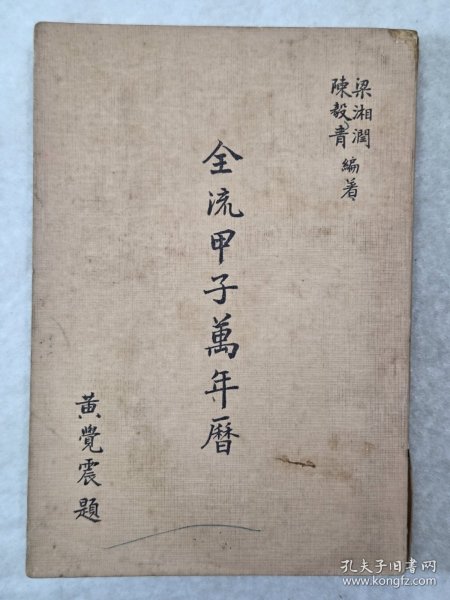 梁湘潤
陳毅青
編著
全流甲子萬年曆
黃覺震題
孔夫子旧书网
www.kongfz.com